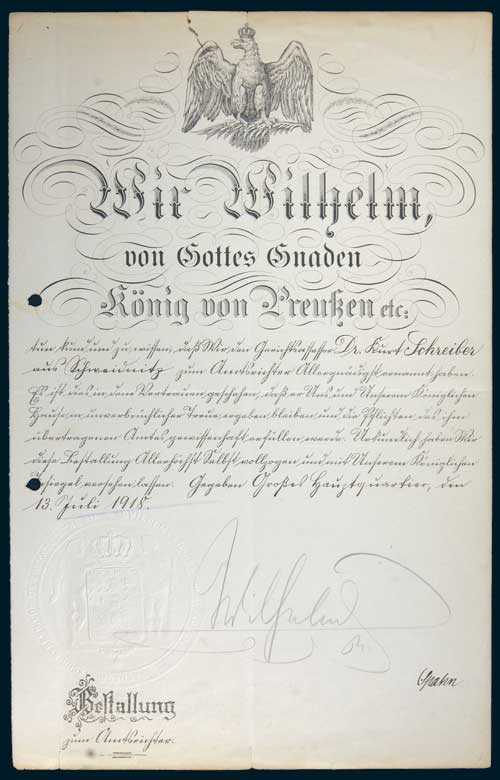 Wir Wilhelm,
von Gottes Gnaden
König von Preußen etc:
tun kund und zu wissen, daß Wir den Gerichtsassessor Dr. Kurt Schreiber
aus Schweidnitz zum Amtsrichter Allergnädigst ernannt haben.
Es ist dies in dem Vertrauen geschehen, daß er Uns und Unserem Königlichen
Hause in unverbrüchlicher Treue ergeben bleiben und die Pflichten des ihm
übertragenen Amtes gewissenhaft erfüllen werde. Urkundlich haben Wir
diese Bestallung Allerhöchst Selbst vollzogen und mit Unserem Königlichen
Insiegel versehen lassen. Gegeben Großes Hauptquartier, den
13. Juli 1918.
Wilhelm
Bestallung
zum Amtsrichter.